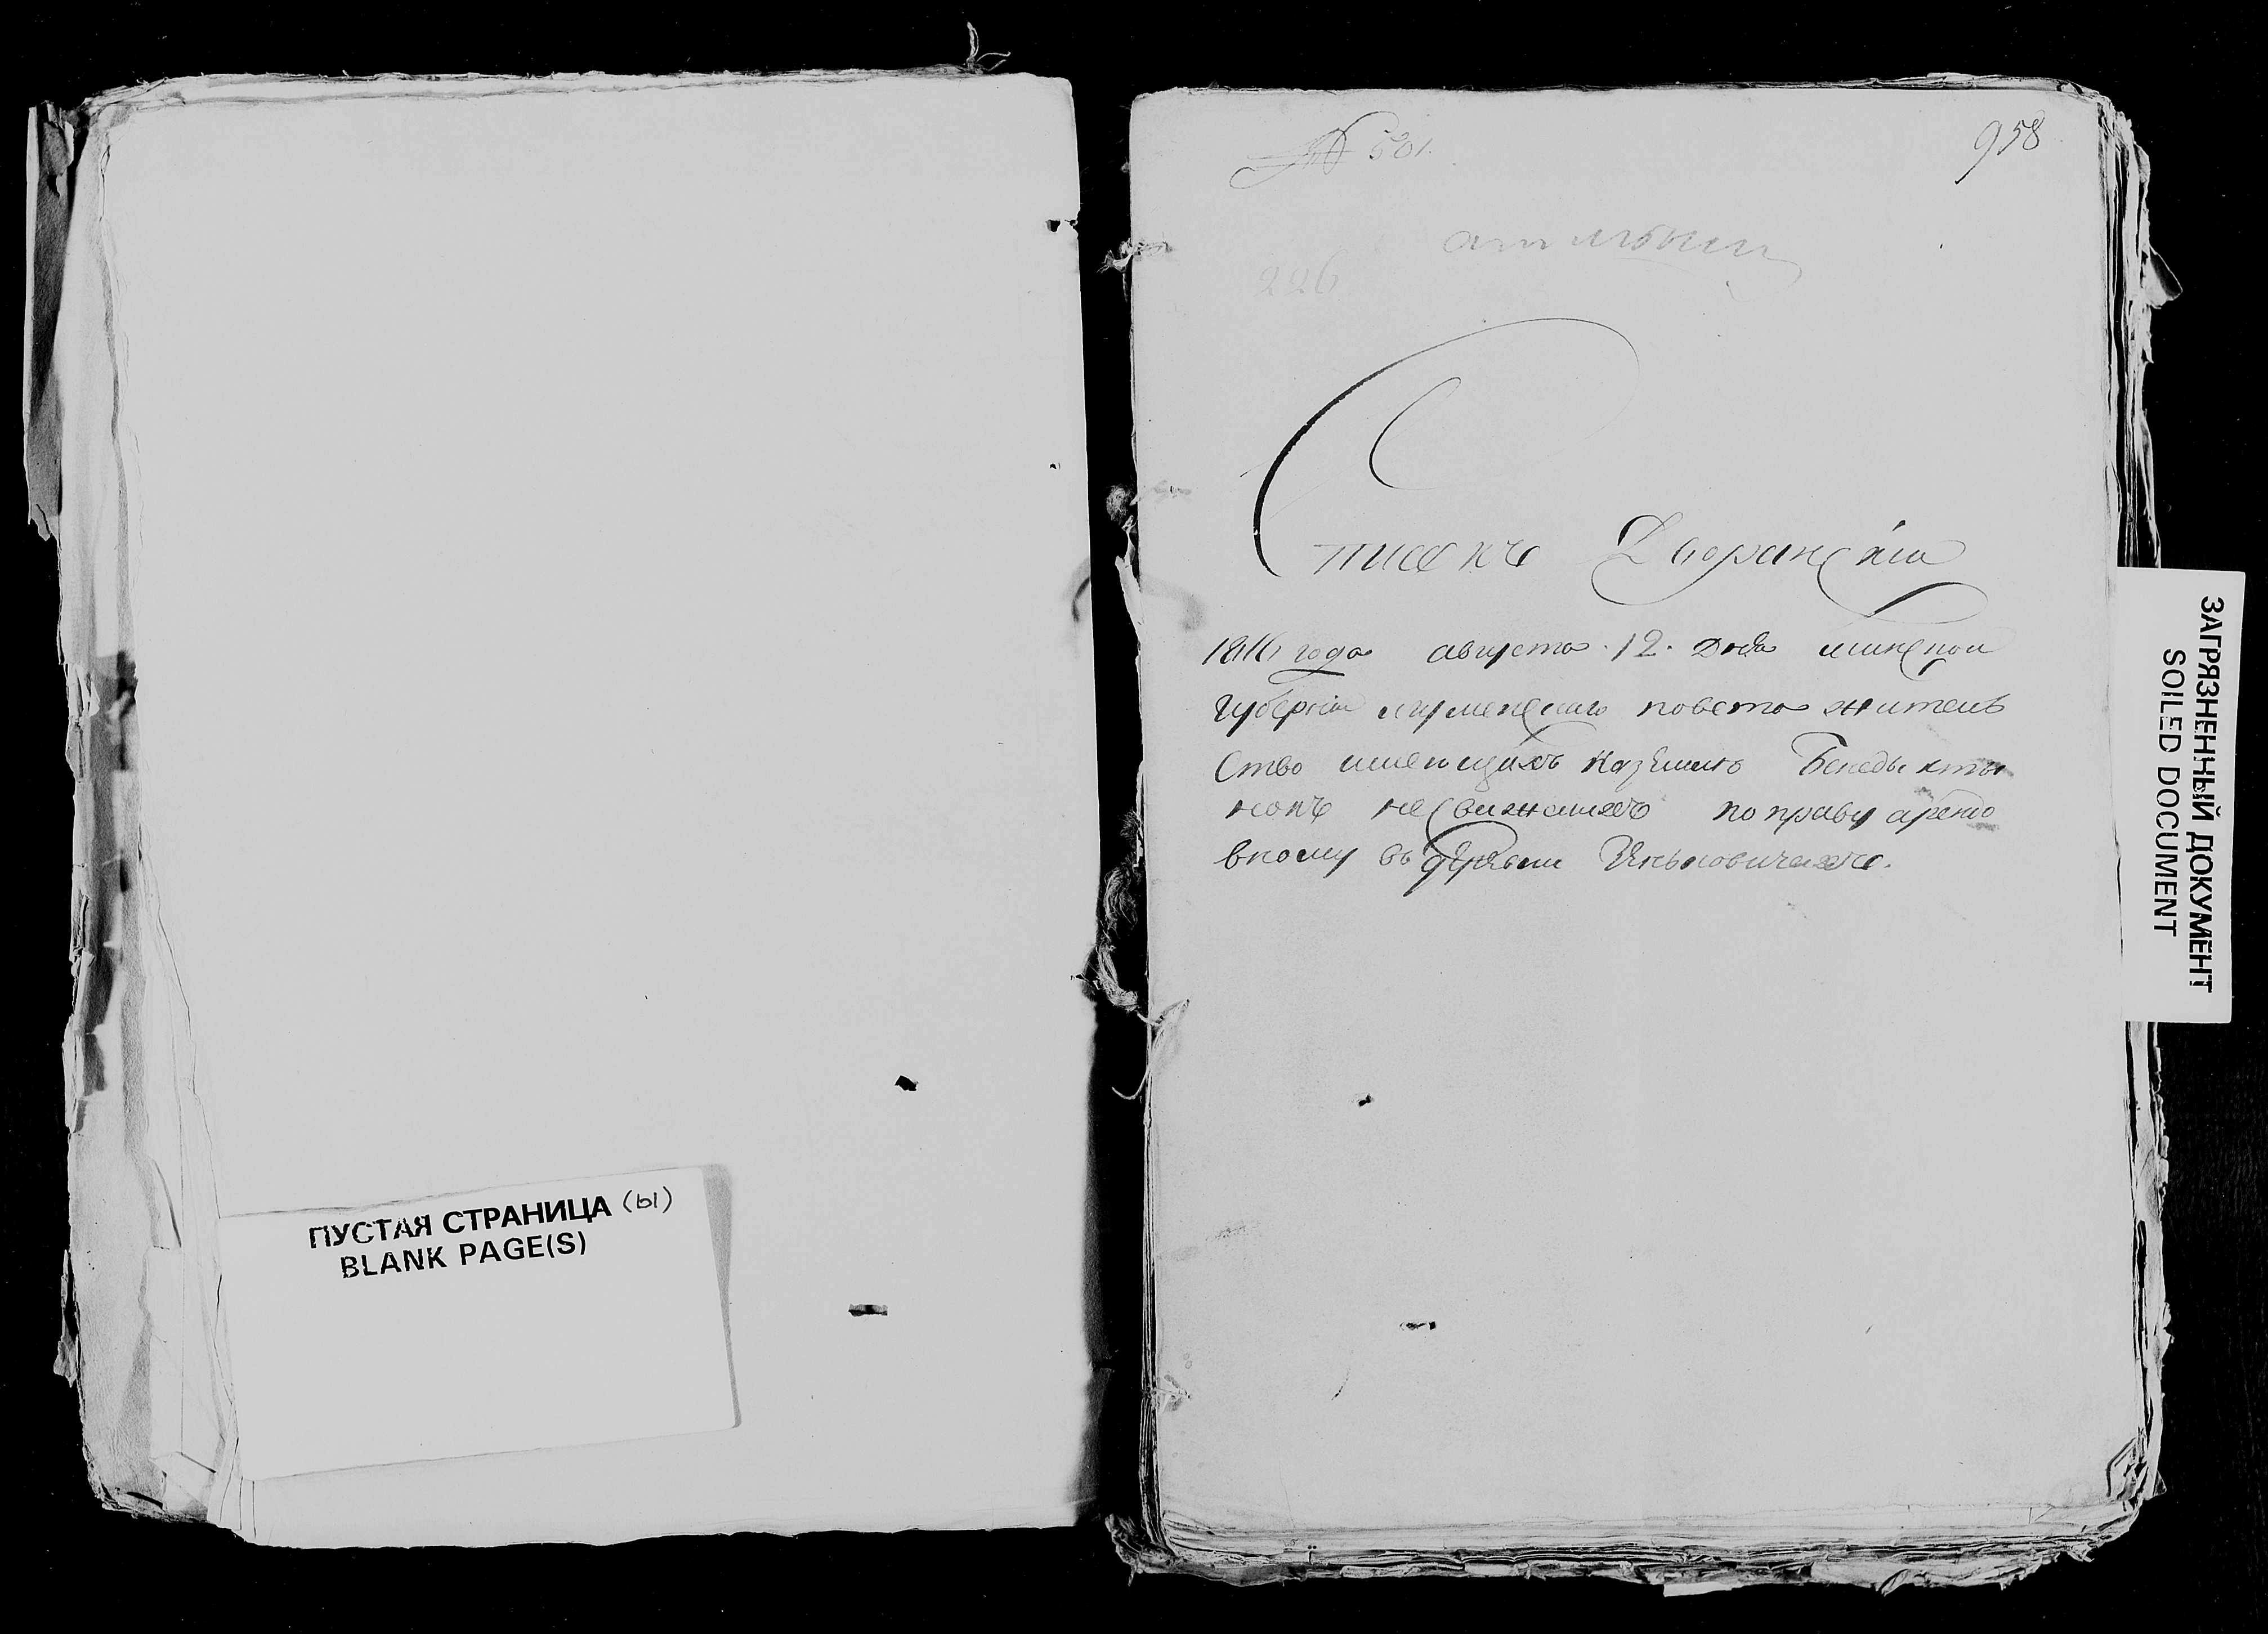 ПУСТАЯ СТРАНИЦА (ы)
BLANK PAGE(S)
№ 501.
958
226
Списокъ Дворянскiй
1816 года августа 12. дня минской
губернiи игуменскаго повета житель
ство имеющихъ Казимиръ Бенедыкты
нокъ несвижскихъ по праву арендо
вному въ Яньковичахъ.
ЗАГРЯЗНЕННЫЙ ДОКУМЕНТ
SOILED DOCUMENT